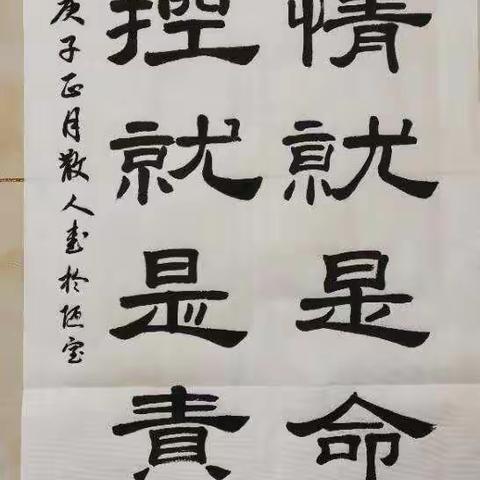 情就是命
控就是責
庚子正月散人書於陋室